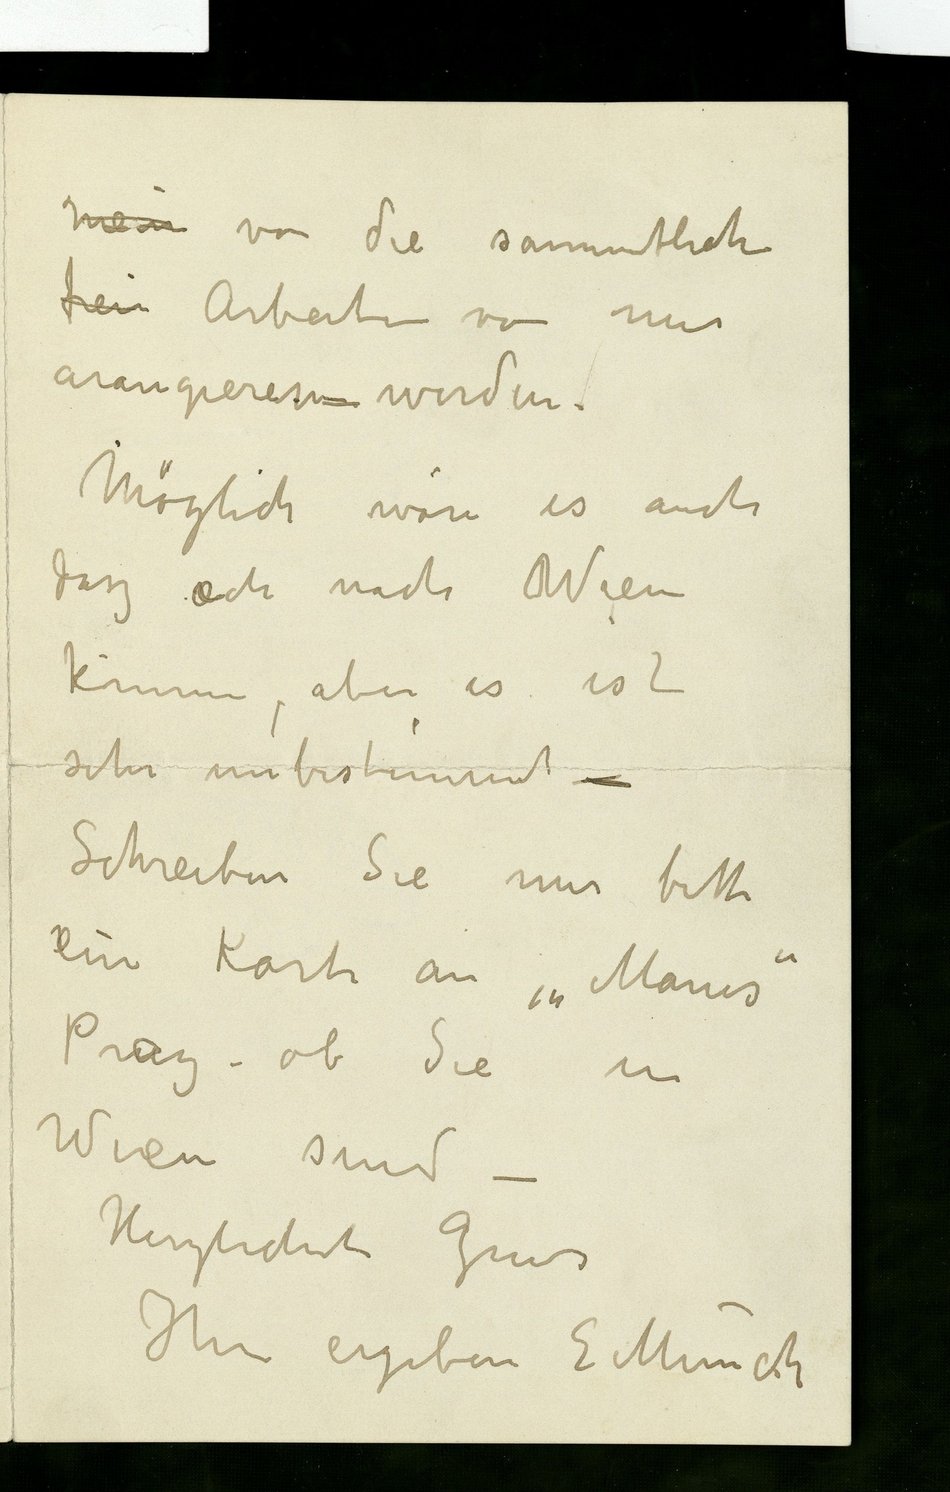 mein von die sammtliche
frei Arbeiten von mir
arangieren werden.
Möglich wäre es auch
dasz ich nach Wien
komme, aber es ist
sehr unbestimmt —
Schreiben Sie mir bitte
ein Karte an „Manes“
Prag - ob Sie in
Wien sind —
Herzlichste Grus
Ihr ergeben E Munch